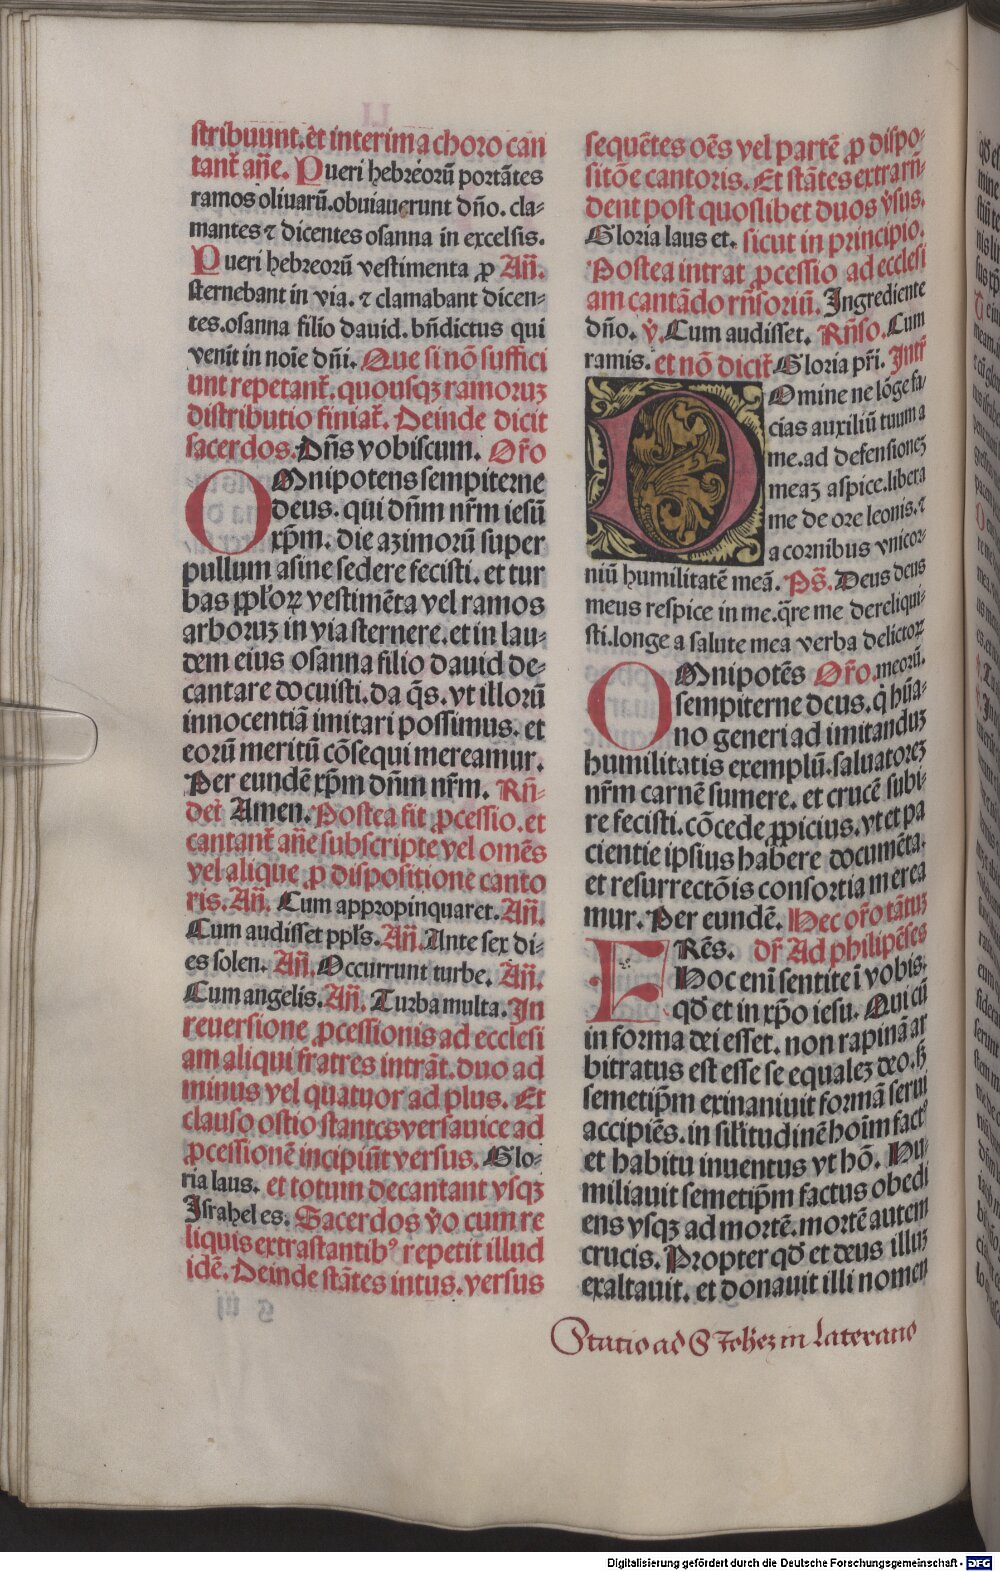 stribuunt. et̄ interim a choro can
tant᷑ añe. Pueri hebreorū portātes
ramos oliuarū. obuiauerunt dño. cla-
mantes ⁊ dicentes osanna in excelsis.
Pueri hebreorū vestimenta ꝓ Añ.
sternebant in via. ⁊ clamabant dicen-
tes. osanna filio dauid. bñdictus qui
venit in noīe dñi. Que si nō suffici
unt repetant᷑. quousqꝫ ramoruꝫ
distributio finiat᷑. Deinde dicit
sacerdos. Dñs vobiscum. Or̃o
OMnipotens sempiterne
deus. qui dñm nr̃m iesū
xp̄m. die azimorū super
pullum asine sedere fecisti. et tur
bas pp̄loꝝ vestimēta vel ramos
arboruꝫ in via sternere. et in lau-
dem eius osanna filio dauid de-
cantare docuisti. da q̄s. vt illorū
innocentiā imitari possimus. et
eorū meritū cōsequi mereamur.
Per eundē xp̄m dñm nr̃m. Rñ-
det᷑ Amen. Postea fit ꝓcessio. et
cantant᷑ añe subscripte vel omēs
vel alique ꝓ dispositione canto
ris. Añ. Cum appropinquaret. Añ.
Cum audisset ppl̄s. Añ. Ante sex di-
es solen. Añ. Occurrunt turbe. Añ.
Cum angelis. Añ. Turba multa. In
reuersione ꝓcessionis ad ecclesi
am aliqui fratres intrāt. duo ad
minus vel quatuor ad plus. Et
clauso ostio stantes versa vice ad
ꝓcessionē incipiūt versus. Glo-
ria laus. et totum decantant vsqꝫ
Israhel es. Sacerdos v̊o cum re
liquis extra stantibꝰ repetit illud
idē. Deinde stātes intus. versus
sequētes oēs vel partē ꝓ dispo-
sitōe cantoris. Et stātes extra rñ-
dent post quoslibet duos v̓sus.
Gloria laus et. sicut in principio.
Postea intrat ꝓcessio ad ecclesi
am cantādo rñsoriū. Ingrediente
dño. v̓. Cum audisset. Rñso. Cum
ramis. et nō dicit᷑ Gloria pr̃i. Intr̃
DOmine ne lōge fa-
cias auxiliū tuum a
me. ad defensioneꝫ
meaꝫ aspice. libera
me de ore leonis. ⁊
a cornibus vnicor-
niū humilitatē meā. Ps̄. Deus deus
meus respice in me. q̄re me dereliqui-
sti. longe a salute mea verba delictoꝝ
OMnipotēs Or̃o. meorū.
sempiterne deus. q̇ hūa-
no generi ad imitanduꝫ
humilitatis exemplū. saluatoreꝫ
nr̃m carnē sumere. et crucē subi-
re fecisti. cōcede ꝓpicius. vt et pa
cientie ipsius habere documēta.
et resurrectōis consortia merea
mur. Per eundē. Hec or̃o tātuꝫ
FRēs. dr̃ Ad philipēses
Hoc enī sentite ī vobis.
qđ et in xp̄o iesu. Qui cū
in forma dei esset. non rapinā ar
bitratus est esse se equaleꝫ deo. sꝫ
semetip̄m exinaniuit formā serui
accipiēs. in sil̄itudinē hoīm factꝰ
et habitu inuentus vt hō. Hu-
miliauit semetip̄m factus obedi
ens vsqꝫ ad mortē. mortē autem
crucis. Propter qđ et deus illuꝫ
exaltauit. et donauit illi nomen
Statio ad S Iohēꝫ in Laterano
Digitalisierung gefördert durch die Deutsche Forschungsgemeinschaft - DFG